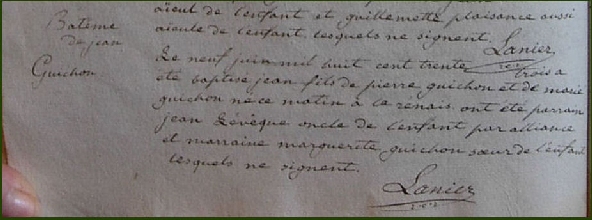 aïeul de l'enfant et guillemette plaisance aussi
aïeule de l'enfant, lesquels ne signent.
Lanier
Batême
de jean
Guichon
Le neuf juin mil huit cent trente trois a
été baptisé jean fils de pierre guichon et de marie
guichon né ce matin à la renais. ont été parrain
jean Levêque oncle de l'enfant par alliance
et marraine marguerite guichon sœur de l'enfant
lesquels ne signent.
Lanier